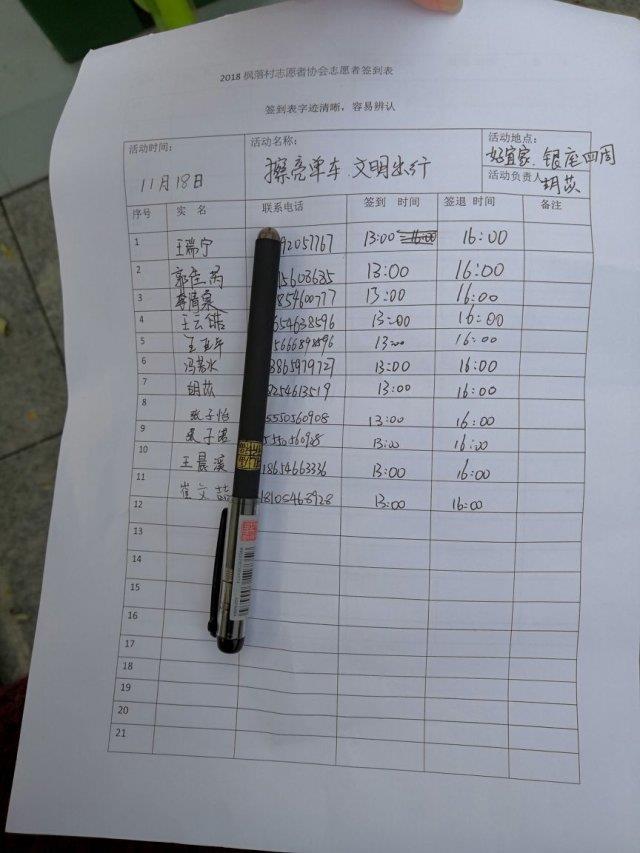 2018 枫落村志愿者协会志愿者签到表
签到表字迹清晰，容易辨认
活动时间： 活动名称： 活动地点：
11月18日 擦亮单车 文明出行 好宜家、银座四周
活动负责人 胡苡
序号 实 名 联系电话 签到 时间 签退 时间 备注
1 王瑞宁 92057767 13:00 16:00 16:00
2 15603635 13:00 16:00
3 854600777 13:00 16:00
4 王云皓 654638596 13:00 16:00
5 5666898596 13:00 16:00
6 冯若水 3865979727 13:00 16:00
7 胡苡 8254613519 13:00 16:00
8 张子怡 5550560908 13:00 16:00
9 张子诺 5550560908 13:00 16:00
10 王晨溪 18654663336 13:00 16:00
11 崔文喆 18105468928 13:00 16:00
12
13
14
15
16
17
18
19
20
21